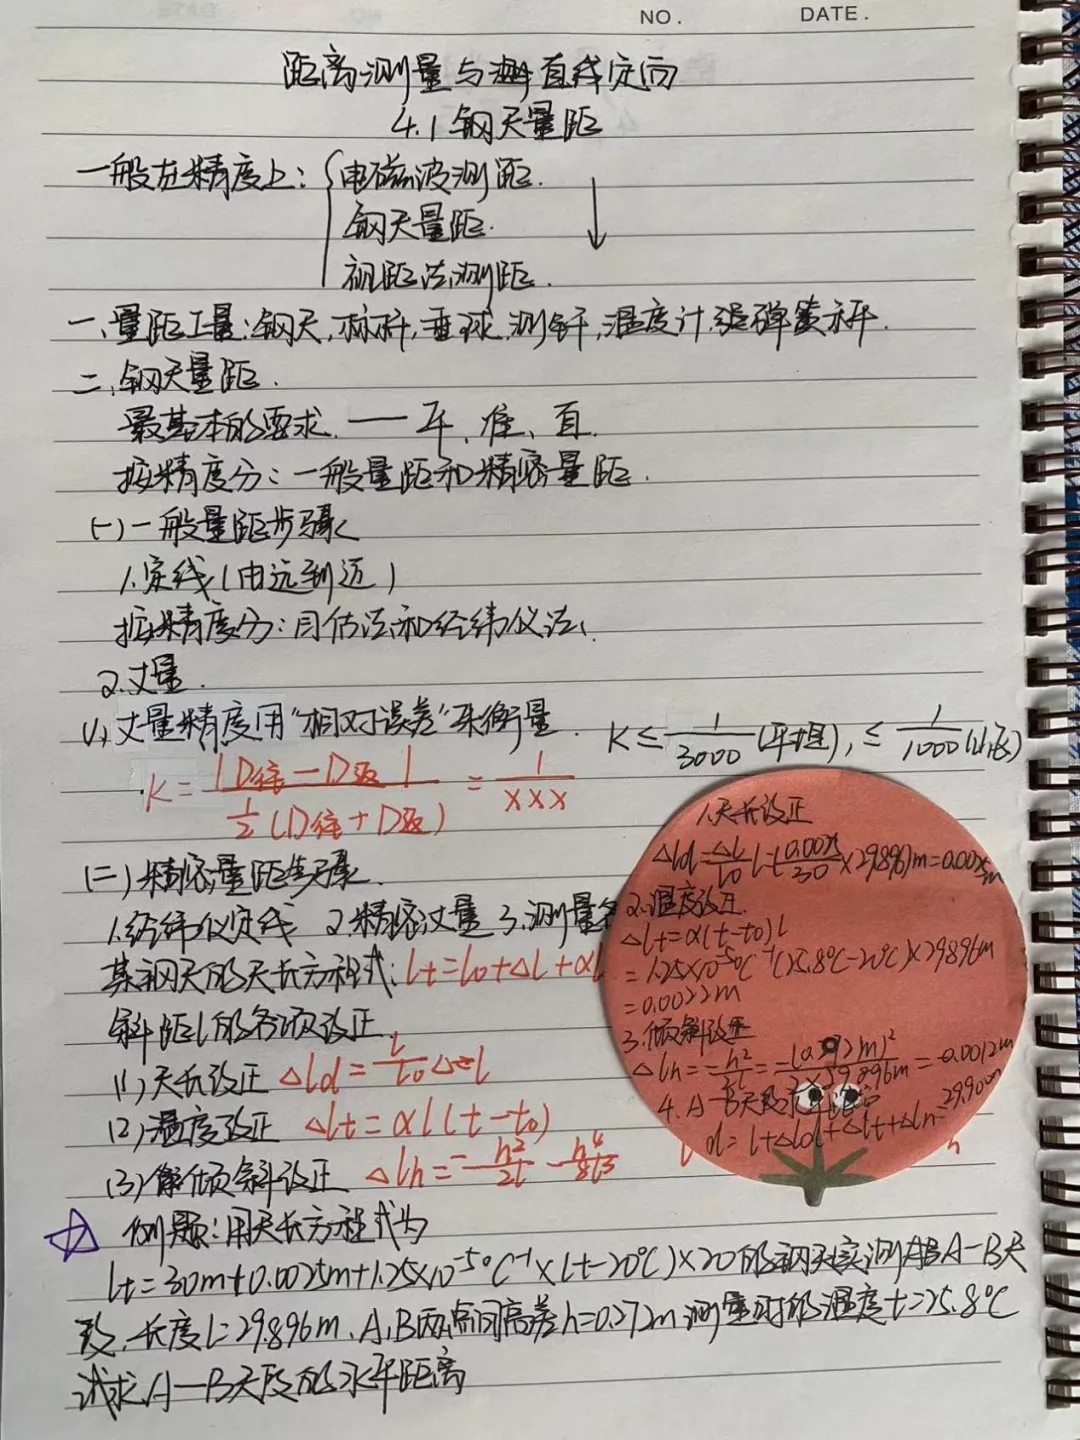 NO.
DATE.
距离测量与直线定向
4.1钢尺量距
一般在精度上：
电磁波测距.
钢尺量距.
视距法测距.
一、量距工量：钢尺，标杆，垂球，测钎，温度计，弹簧秤.
二、钢尺量距.
最基本的要求.——平、准、直.
按精度分：一般量距和精密量距.
(一)一般量距步骤
1.定线(由远到近)
按精度分：目估法和经纬仪法.
2.丈量.
(1)丈量精度用"相对误差"来衡量. K≤1/3000(平坦),≤1/1000(山区)
K=|D往-D返|/½(D往+D返)=1/XXX
(二)精密量距步骤.
1.经纬仪定线 2.精密丈量 3.测量各
某钢尺的尺长方程式：lt=l0+Δl+αl
斜距l的各项改正
(1)尺长改正 Δld=l/l0 Δl
(2)温度改正 Δlt=αl(t-t0)
(3)倾斜改正 Δlh=-h²/2l-h⁴/8l³
1.尺长改正
2.温度改正.
Δlt=α(t-t0)l
=1.25×10⁻⁵℃⁻¹(25.8℃-20℃)×29.896m
=0.0022m
3.倾斜改正
4.A-B尺段水平距离
d=l+Δld+Δlt+Δlh=
例题：用尺长方程式为
lt=30m+0.0025m+1.25×10⁻⁵℃⁻¹×(t-20℃)×20的钢尺实测A-B尺
段，长度l=29.896m，A,B两点间高差h=0.272m测量时的温度t=25.8℃
试求A-B尺段的水平距离